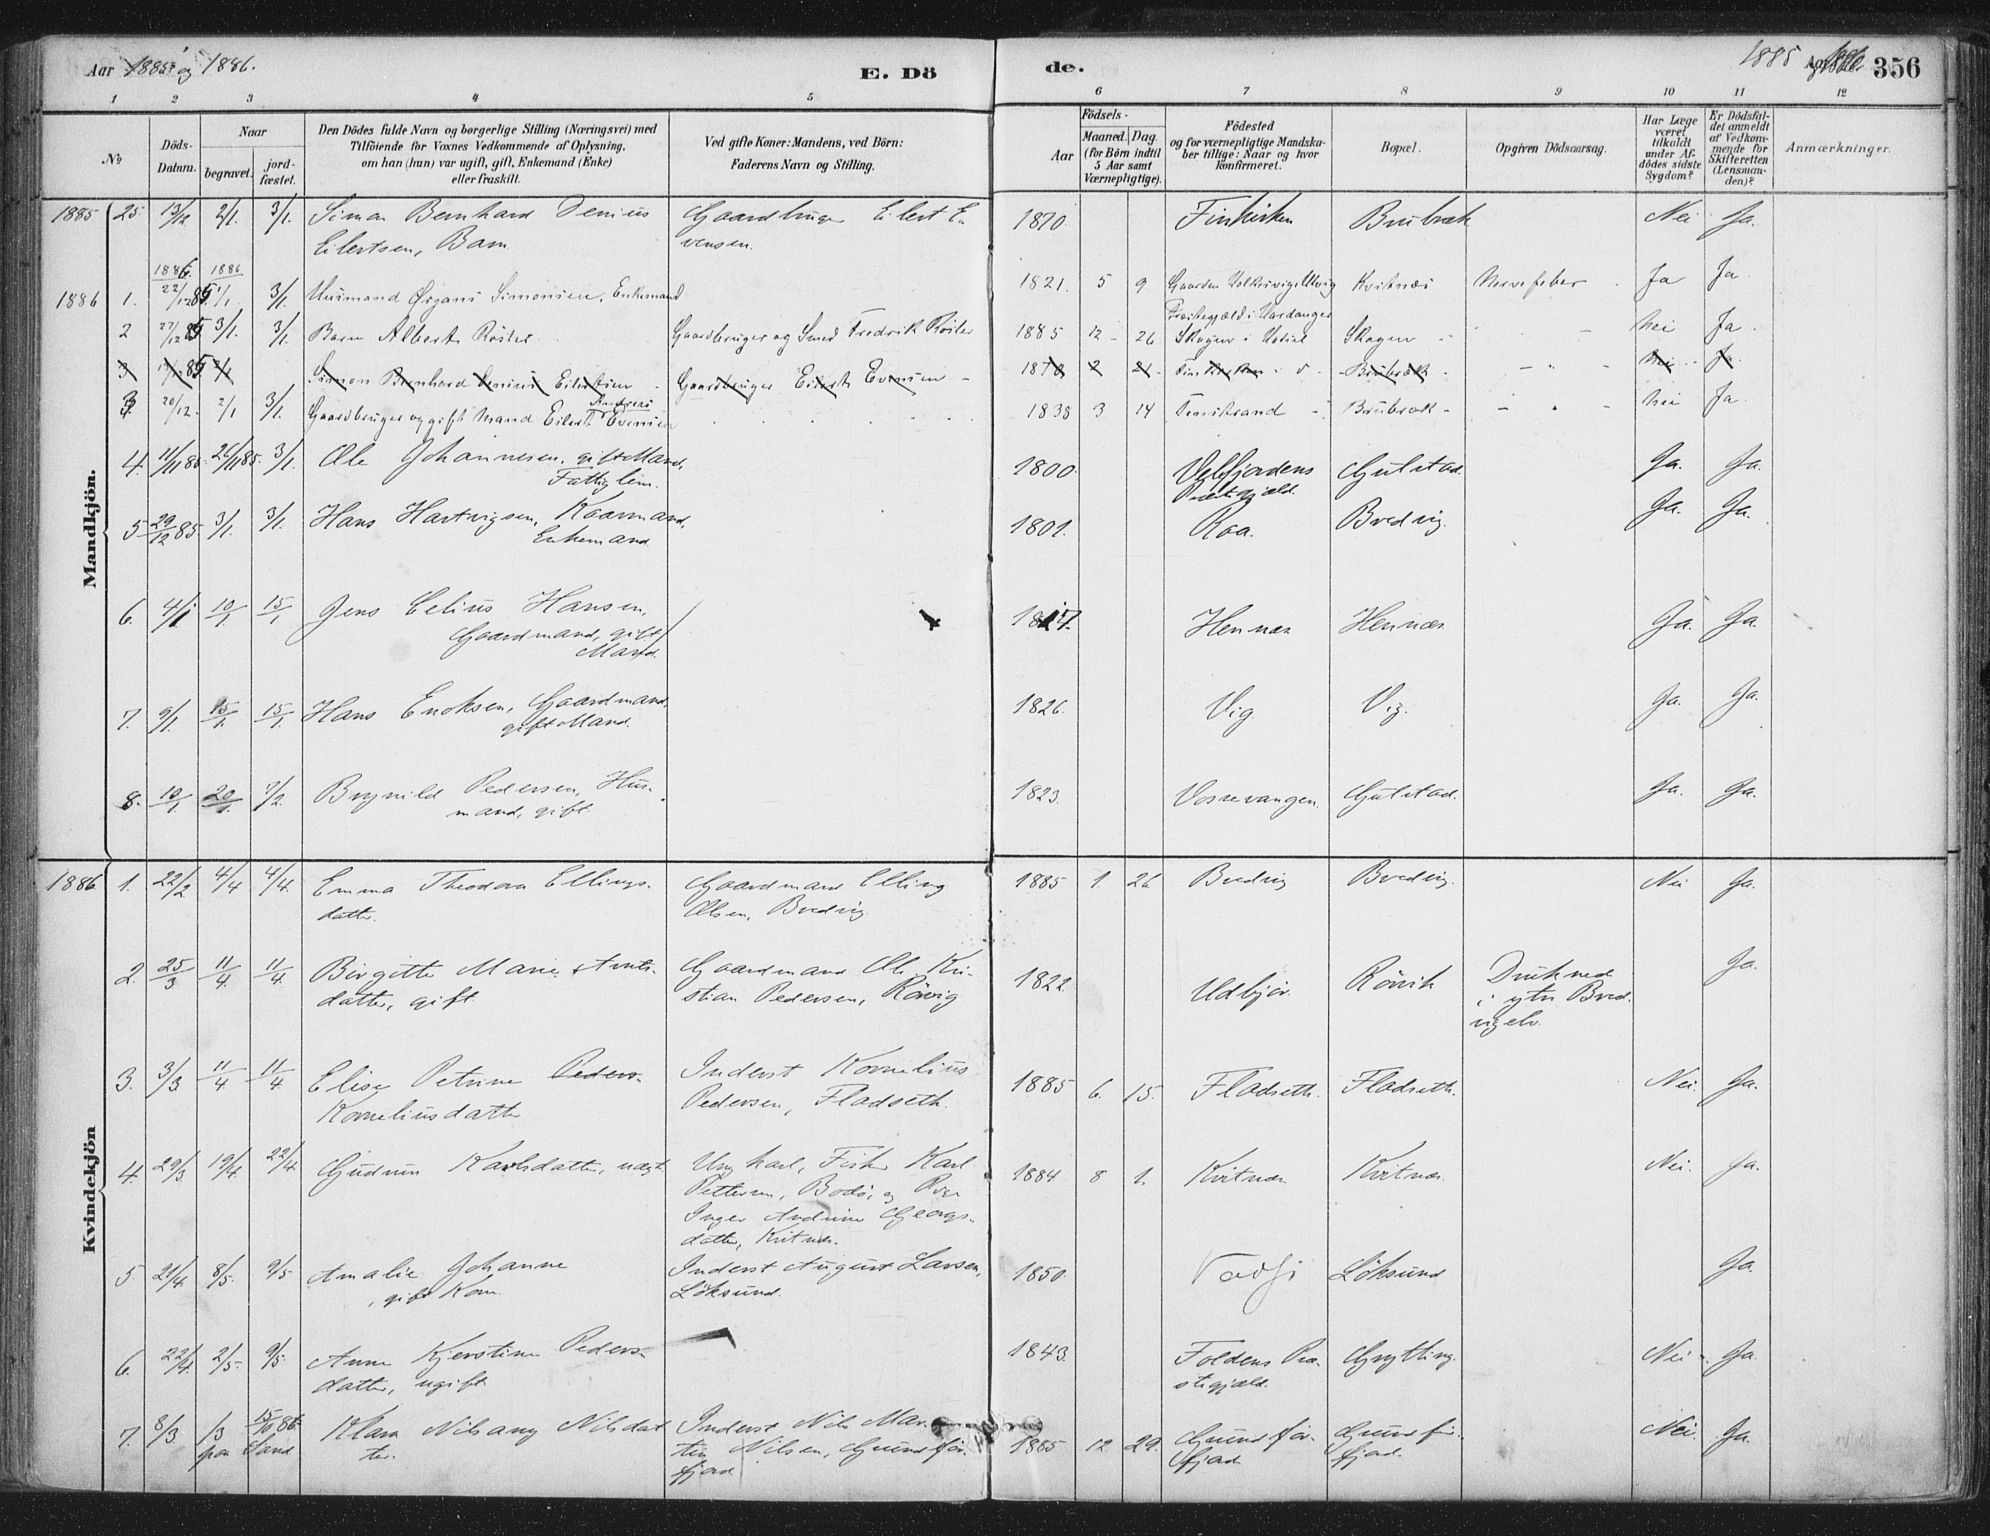 Aar 1885 og 1886.
E. Dö
de.
1885 og 1886. 356
1 2 3 4 5 6 7 8 9 10 11 12
No
Döds-
Datum.
Naar
begravet.
jord-
fæstet.
Den Dödes fulde Navn og borgerlige Stilling (Næringsvei) med
Tilföiende for Voxnes Vedkommende af Oplysning,
om han (hun) var ugift, gift, Enkemand (Enke)
eller fraskilt.
Ved gifte Koner: Mandens, ved Börn:
Faderens Navn og Stilling.
Födsels-
Aar
Maaned. Dag.
(for Börn indtil
5 Aar samt
Værnepligtige).
Födested
og for værnepligtige Mandska-
ber tillige: Naar og hvor
konfirmeret.
Bopæl.
Opgiven Dödsaarsag.
Har Læge
været
tilkaldt
under Af-
dödes sidste
Sygdom?
Er Dödsfal-
det anmeldt
af Vedkom-
mende for
Skifteretten
(Lensman-
den)?
Anmærkninger.
Mandkjön.
1885 25. 13/12 2/1. 3/1. Simon Bernhard Denius Gaardbruger Eilert E- 1870. Finkirken Brubæk Nei Ja.
Eilertsen, Barn vensen.
1886. 1886
1886 1. 22/12 85 1/1 3/1. Husmand Ørgans Simonsen, Enkemand 1821. 5 9 Gaarden Ulvig Kvitnæs Nervefeber Ja Ja
Præstegjæld i Hardanger
2 27/12 85 3/1. 3/1. Barn Albert Røiter Gaardbruger og Smed Fredrik Röiter 1885 12 26 Skogen i Skogen Nei Ja.
3 13/12 85 2/1 Simon Bernhard Denius Eilertsen Gaardbruger Eilert Evensen 1870 2 21 Brubæk Nei Ja
3. 20/12. 2/1 3/1. Gaardbruger og gift Mand Eilert Andreas Evensen 1838 3 14 Finstrand Brubæk Nei Ja.
4. 11/11 85. 26/11 85. 3/1. Ole Johannesen, gift Mand, 1800. Velfjordens Gulstad Ja. Ja.
Fattiglem. Præstegjæld.
5 29/12 85. 3/1. 3/1. Hans Hartvigsen, Kaarmand, 1801. Roa. Bredvig. Ja. Ja.
Enkemand
6. 4/1 10/1. 15/1 Jens Celius Hansen, 1817. Hennæs Hennæs. Ja. Ja.
Gaardmand, gift
Mand.
7. 9/1. 15/1. 15/1. Hans Enoksen, Gaardmand, 1826. Vig Vig. Ja. Ja.
gift Mand.
8. 10/1. 20/1. 7/2. Brynild Pedersen, Hus- 1823. Vossevangen. Gulstad. Ja. Ja.
mand, gift.
Kvindekjön
1886 1. 22/2 4/4 4/4. Emma Theodora Ellings- Gaardmand Elling 1885 1. 26 Bredvig Bredvig. Nei Ja.
datter. Olsen, Bredvig.
2. 25/3 11/4. 11/4. Birgitte Marie Arnts- Gaardmand Ole Kri- 1822. Udbjör. Rörvik Druknet Ja.
datter, gift stian Pedersen, Rörvig i ytre Bred-
vigelv.
3. 3/3 11/4 11/4 Elise Petrine Peders- Inderst Kornelius 1885 6. 15. Fladseth. Fladseth. Nei. Ja.
Korneliusdatter Pedersen, Fladseth.
4. 29/3. 19/4. 22/4. Gudrun Karlsdatter, uægt Ungkarl, Fisker Karl 1884 8 1. Kvitnæs Kvitnæs. Nei. Ja.
Pettersen, Bodö, og Pige
Inger Andrine Georgs-
datter, Kvitnæs.
5. 21/4. 8/5. 9/5 Amalie Johanne Inderst August Larsen, 1850. Vadsö Löksund Ja.
, gift Kone. Löksund.
6. 22/4. 2/5. 9/5. Anne Kjerstine Peders- 1843. Foldens Præ- Grytting. Nei Ja.
datter, ugift stegjæld.
7. 8/3. /3 15/10 86. Klara Nilsang Nilsdat Inderst Nils Mar- 1885 12. 29. Gunnsför- Gunnsför- Nei. Ja.
paa Sand ter. tin Nilsen, Gunnsför- fjord fjord.
fjord